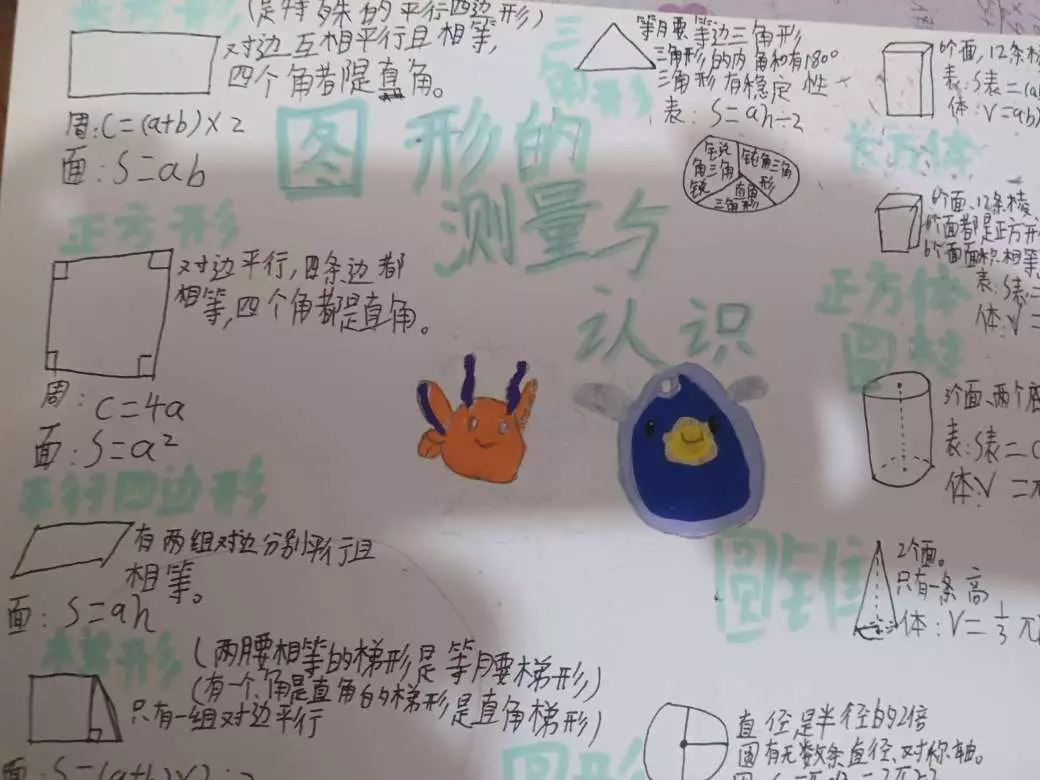 长方形
(是特殊的平行四边形)
对边互相平行且相等,
四个角都是直角。
周:C=(a+b)×2
面:S=ab
正方形
对边平行,四条边都
相等,四个角都是直角。
周:C=4a
面:S=a²
平行四边形
有两组对边分别平行且
相等。
面:S=ah
梯形
(两腰相等的梯形是等腰梯形,)
(有一个角是直角的梯形是直角梯形)
只有一组对边平行
面:S=(a+b)×
图形的
测量与
认识
三角形
等腰 等边三角形
三角形的内角和有180°
三角形有稳定性
表:S=ah÷2
锐角三角
钝角三角形
直角三角形
长方体
6个面,12条棱
表:S表=(a
体:V=ab
正方体
6个面、12条棱
6个面都是正方形
6个面面积相等
表:S表=
体:V=
圆柱
3个面、两个底
表:S表=
体:V=
圆锥
2个面。
只有一条高
体:V=1/3
圆形
直径是半径的2倍
圆有无数条直径、对称轴。